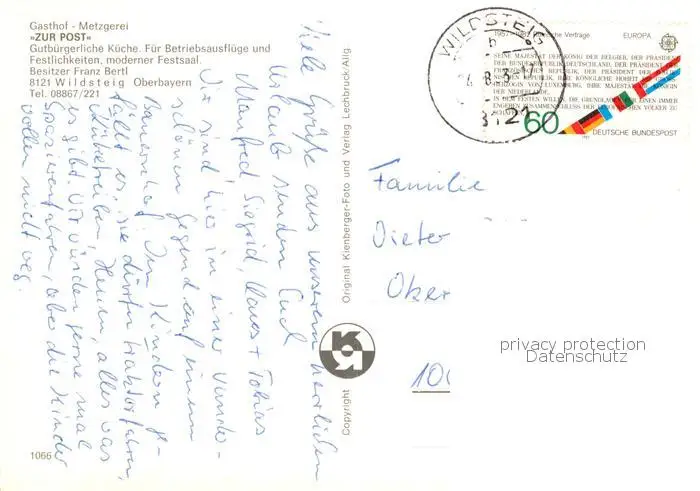 Gasthof - Metzgerei
»ZUR POST«
Gutbürgerliche Küche. Für Betriebsausflüge und
Festlichkeiten, moderner Festsaal.
Besitzer Franz Bertl
8121 Wildsteig Oberbayern
Tel. 08867/221
Viele Grüße aus unserem herrlichen
Urlaub senden Euch
Manfred, Sigrid, Klaus + Tobias
Wir sind hier in einer wunder-
schönen Gegend auf einem
Bauernhof. Den Kindern ge-
fällt es. Sie dürfen Traktorfahren,
Heuen, alles was
es gibt. Wir würden gerne mal
spazierenfahren, aber die Kinder
wollen nicht weg.
1066
Original Kienberger-Foto und Verlag Lechbruck/Allg.
Copyright
WILDSTEIG
b
8121
1957-1982 Römische Verträge
EUROPA
SEINE MAJESTÄT DER KÖNIG DER BELGIER, DER PRÄSIDENT
DER BUNDESREPUBLIK DEUTSCHLAND, DER PRÄSIDENT DER
FRANZÖSISCHEN REPUBLIK, DER PRÄSIDENT DER
ITALIENISCHEN REPUBLIK, IHRE KÖNIGLICHE HOHEIT DIE GROSS-
HERZOGIN VON LUXEMBURG, IHRE MAJESTÄT DIE KÖNIGIN
DER NIEDERLANDE,
IN DEM FESTEN WILLEN, DIE GRUNDLAGEN FÜR EINEN IMMER
ENGEREN ZUSAMMENSCHLUSS DER EUROPÄISCHEN VÖLKER ZU
SCHAFFEN
60
DEUTSCHE BUNDESPOST
Familie
Dieter
Ober
10
privacy protection
Datenschutz